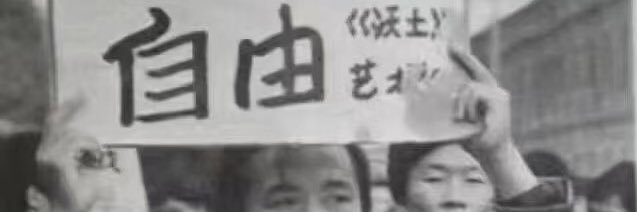 自由
《沃土》
艺术